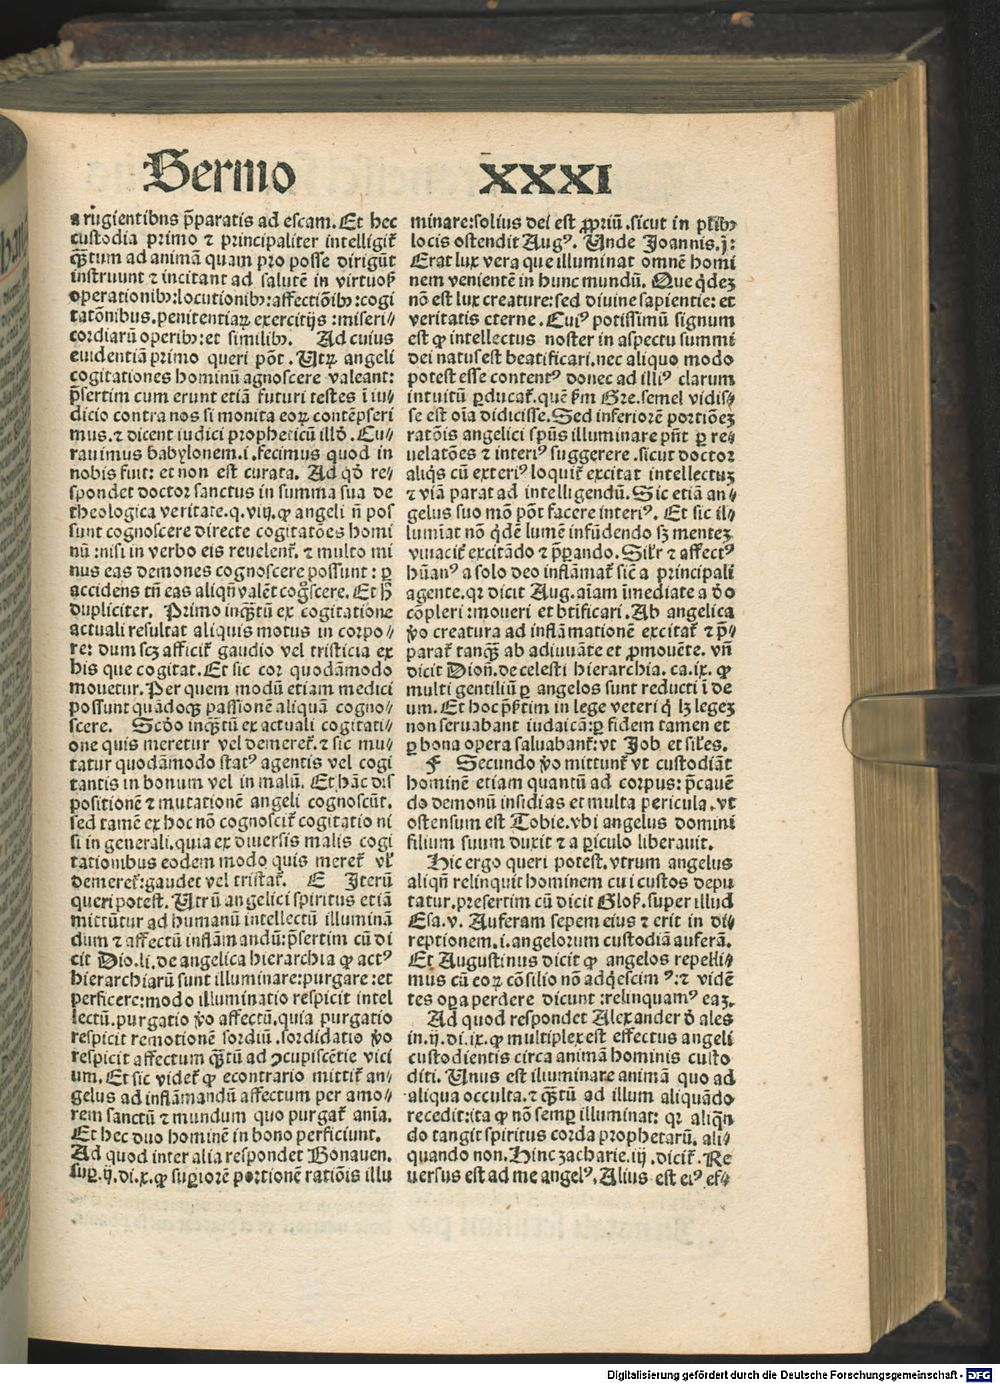 Sermo XXXI
a rugientibus p̄paratis ad escam. Et hec
custodia primo ⁊ principaliter intelligit᷑
qꝫ̄tum ad animā quam pro posse dirigūt
instruunt ⁊ incitant ad salutē in virtuoſ
operationibꝫ: locutionibꝫ: affectiōibꝫ: cogi
tatōnibus. penitentiaꝝ exercitijs : miseri⸗
cordiarū operibꝫ: et similibꝫ. Ad cuius
euidentiā primo queri pōt. Utꝝ angeli
cogitationes hominū agnoscere valeant:
p̄sertim cum erunt etiā futuri testes ī iu⸗
dicio contra nos si monita eoꝝ contēpseri
mus. ⁊ dicent iudici propheticū illđ. Cu⸗
rauimus babylonem. i. fecimus quod in
nobis fuit: et non est curata. Ad qđ re⸗
spondet doctor sanctus in summa sua de
theologica veritate. q. viij. ꝙ angeli n̄ pos
sunt cognoscere directe cogitatōes homi
nū : nisi in verbo eis reuelent᷑. ⁊ multo mi
nus eas demones cognoscere possunt : ꝑ
accidens tn̄ eas aliqn̄ valēt cog̊scere. Et h̄
dupliciter. Primo inqꝫ̄tū ex cogitatione
actuali resultat aliquis motus in corpo⸗
re: dum scꝫ afficit᷑ gaudio vel tristicia ex
his que cogitat. Et sic cor quodāmodo
mouetur. Per quem modū etiam medici
possunt quādoqꝫ passionē aliquā cogno⸗
scere. Scđo inqꝫ̄tū ex actuali cogitati⸗
one quis meretur vel demeret᷑. ⁊ sic mu⸗
tatur quodāmodo statꝰ agentis vel cogi
tantis in bonum vel in malū. Et hāc dis
positionē ⁊ mutationē angeli cognoscūt.
sed tamē ex hoc nō cognoscit᷑ cogitatio ni
si in generali. quia ex diuersis malis cogi
tationibus eodem modo quis meret᷑ vl̓
demeret᷑: gaudet vel tristat᷑. E Iterū
queri potest. Utrū angelici spiritus etiā
mittūtur ad humanū intellectū illuminā
dum ⁊ affectū inflāmandū: p̄sertim cū di
cit Dio. li. de angelica hierarchia ꝙ actꝰ
hierarchiarū sunt illuminare: purgare : et
perficere: modo illuminatio respicit intel
lectū. purgatio v̊o affectū. quia purgatio
respicit remotionē sordiū. sordidatio v̊o
respicit affectum qꝫ̄tū ad ꝯcupiscētie vici
um. Et sic videt᷑ ꝙ econtrario mittit᷑ an⸗
gelus ad inflāmandū affectum per amo⸗
rem sanctū ⁊ mundum quo purgat᷑ aīa.
Et hec duo hominē in bono perficiunt.
Ad quod inter alia respondet Bonauen.
suꝑ. ij. di. x. ꝙ suꝑiorē portionē ratiōis illu
minare: solius dei est ꝓpriū. sicut in pl̓ribꝫ
locis ostendit Augꝰ. Unde Joannis. j:
Erat lux vera que illuminat omnē homi
nem venientē in hunc mundū. Que qđeꝫ
nō est lux creature: sed diuine sapientie: et
veritatis eterne. Cuiꝰ potissimū signum
est ꝙ intellectus noster in aspectu summi
dei natus est beatificari. nec aliquo modo
potest esse contentꝰ donec ad illiꝰ clarum
intuitū ꝑducat᷑. quē ẜm Gre. semel vidis⸗
se est oīa didicisse. Sed inferiorē portiōeꝫ
ratōis angelici spūs illuminare pn̄t ꝑ re⸗
uelatōes ⁊ interiꝰ suggerere. sicut doctor
aliqs cū exteriꝰ loquit᷑ excitat intellectuꝫ
⁊ viā parat ad intelligendū. Sic etiā an⸗
gelus suo mō pōt facere interiꝰ. Et sic il⸗
lumīat nō qđē lumē infūdendo sꝫ menteꝫ
viuacit᷑ excitādo ⁊ p̄ꝑando. Sil̓r ⁊ affectꝰ
hūanꝰ a solo deo inflāmat᷑ sic̄ a principali
agente. qꝛ dicit Aug. aīam īmediate a đo
cōpleri : moueri et btificari. Ab angelica
v̊o creatura ad inflāmationē excitat᷑ ⁊ p̄⸗
parat᷑ tanqꝫ ab adiuuāte et ꝓmouēte. vn̄
dicit Dion̄. de celesti hierarchia. ca. ix. ꝙ
multi gentiliū ꝑ angelos sunt reducti ī de
um. Et hoc p̄s̄tim in lege veteri q̓ lꝫ legeꝫ
non seruabant iudaicā: ꝑ fidem tamen et
ꝑ bona opera saluabant᷑: vt Job et sil̓es.
F Secundo v̊o mittunt᷑ vt custodiāt
hominē etiam quantū ad corpus: p̄cauē
do demonū insidias et multa pericula. vt
ostensum est Tobie. vbi angelus domini
filium suum duxit ⁊ a ꝑiculo liberauit.
Hic ergo queri potest. vtrum angelus
aliqn̄ relinquit hominem cui custos depu
tatur. presertim cū dicit Gloſ. super illud
Esa. v. Auferam sepem eius ⁊ erit in di⸗
reptionem. i. angelorum custodiā auferā.
Et Augustinus dicit ꝙ angelos repelli⸗
mus cū eoꝝ cōsilio nō adq̓escimꝰ: ⁊ vidē
tes oꝑa perdere dicunt : relinquamꝰ eaꝫ.
Ad quod respondet Alexander đ ales
in. ij. di. ix. ꝙ multiplex est effectus angeli
custodientis circa animā hominis custo
diti. Unus est illuminare animā quo ad
aliqua occulta. ⁊ qꝫ̄tū ad illum aliquādo
recedit: ita ꝙ nō semꝑ illuminat: qꝛ aliqn̄
do tangit spiritus corda prophetarū. ali⸗
quando non. Hinc zacharie. iij. dicit᷑. Re
uersus est ad me angelꝰ. Alius est eiꝰ ef⸗
Digitalisierung gefördert durch die Deutsche Forschungsgemeinschaft - DFG